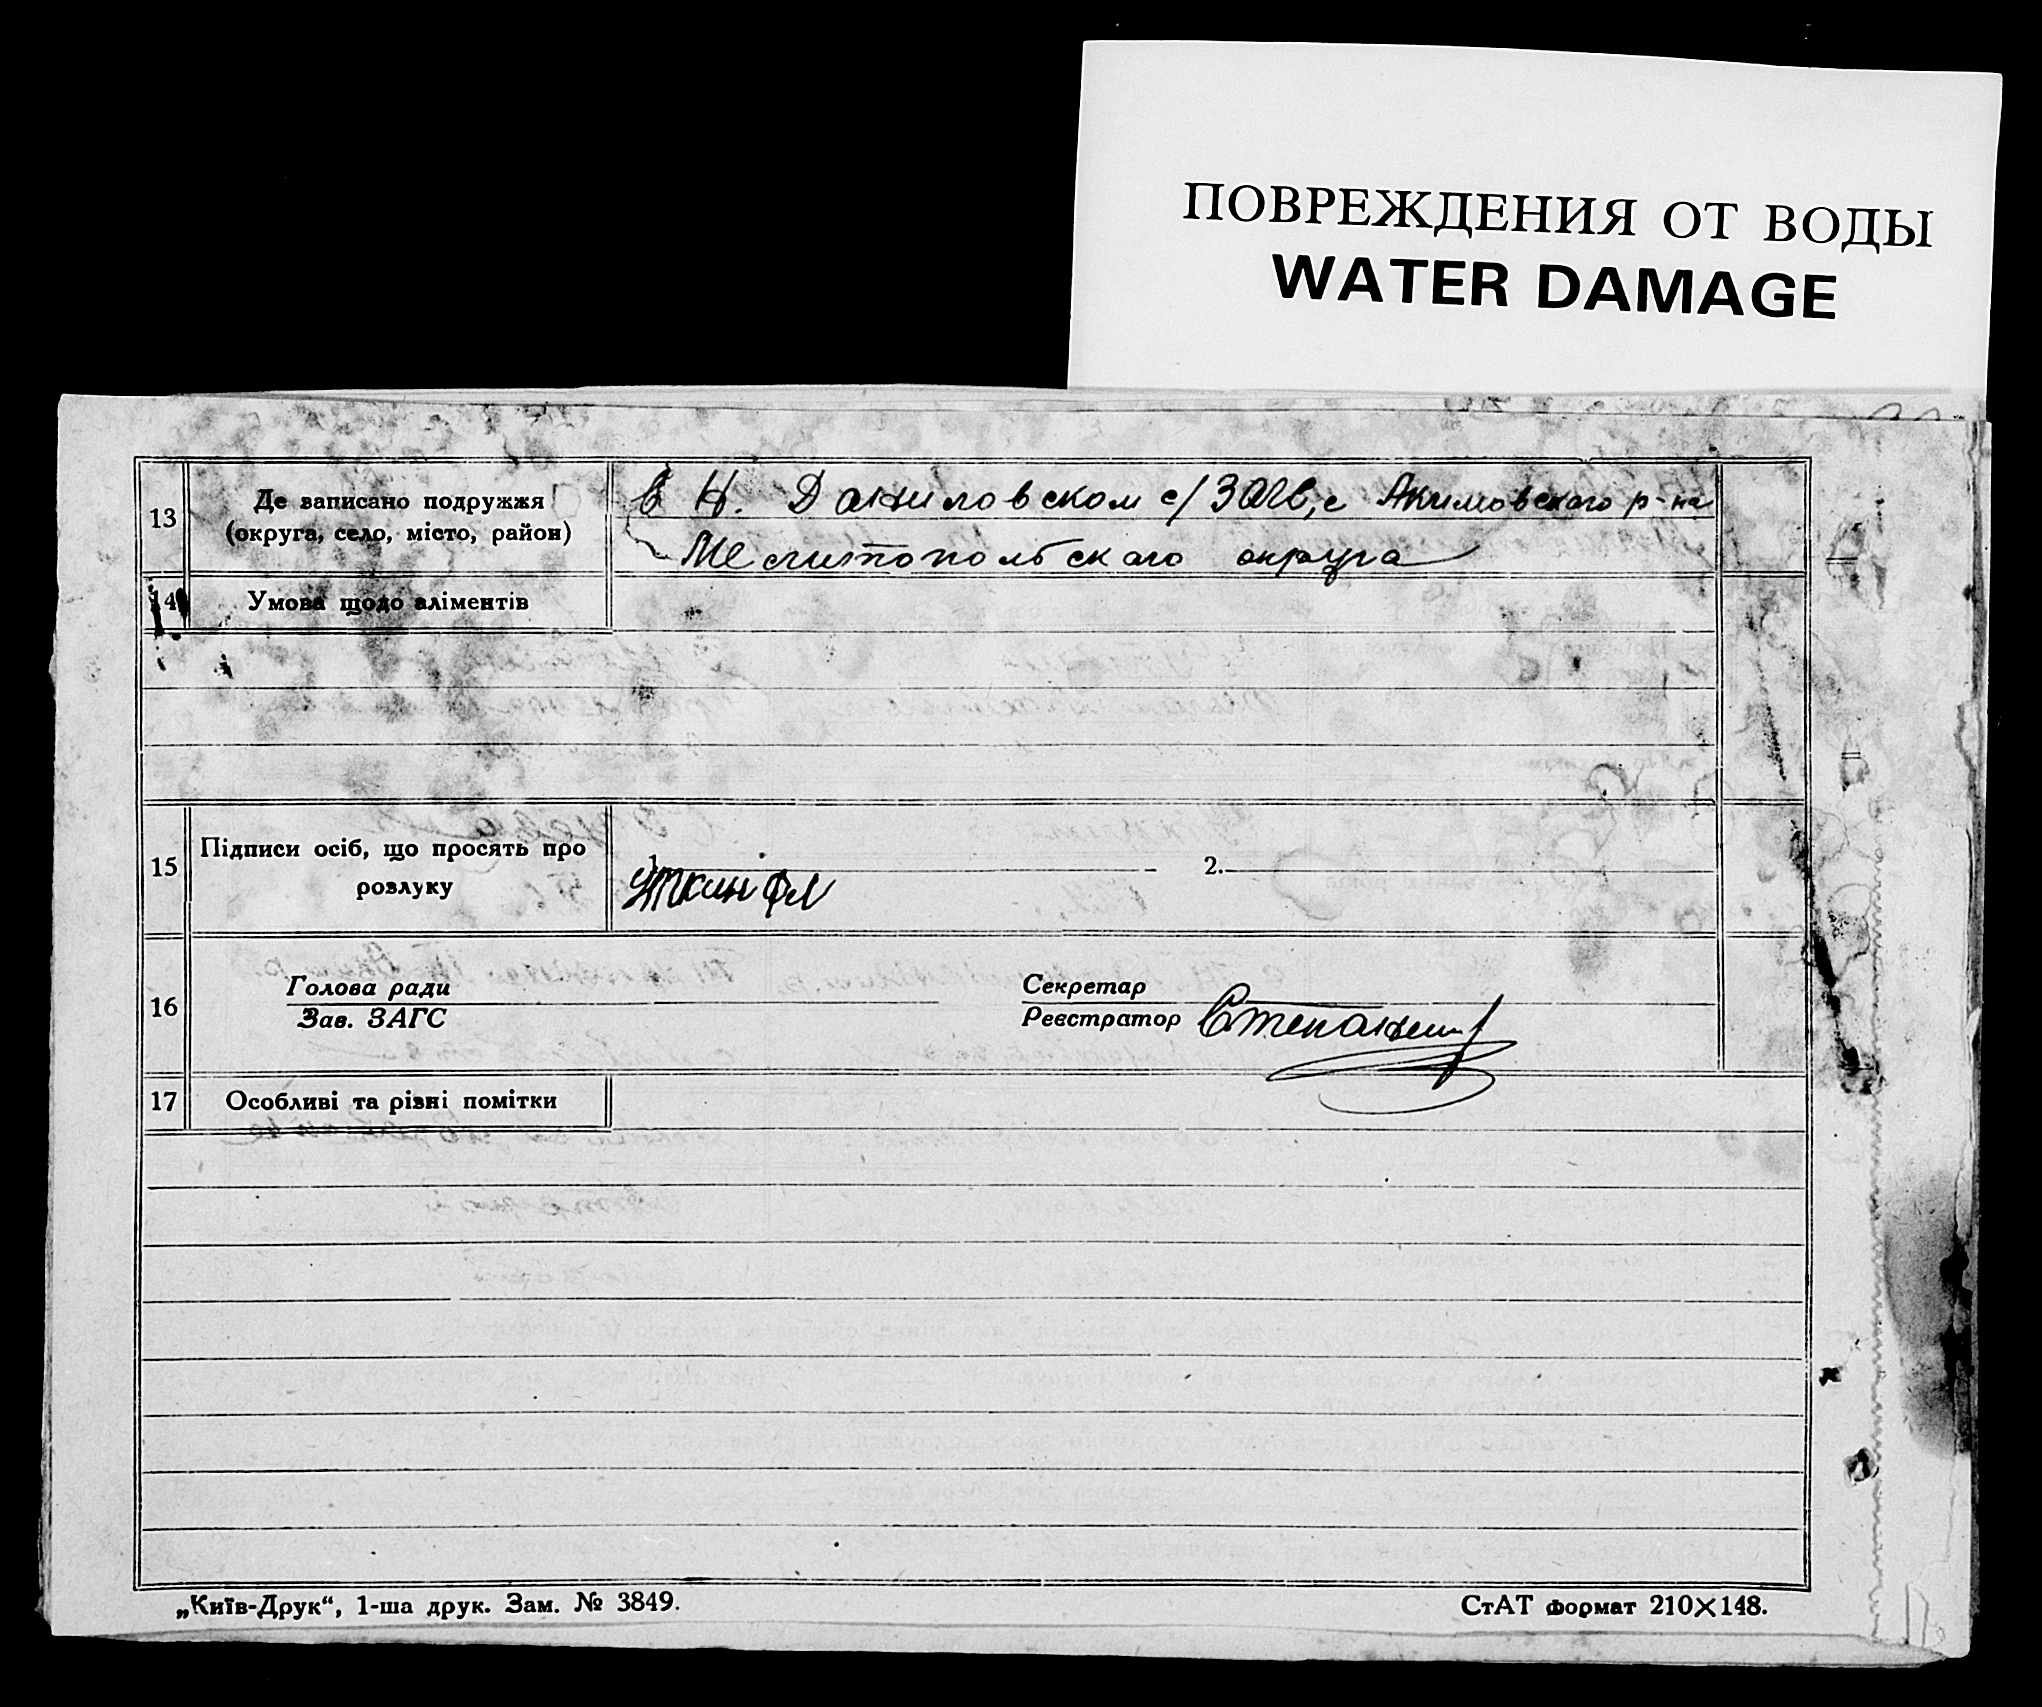 ПОВРЕЖДЕНИЯ ОТ ВОДЫ
WATER DAMAGE
13
Де записано подружжя
(округа, село, місто, район)
в Н. Даниловском с/ЗАГс, с Акимовского р-на
Мелитопольского округа
14
Умова щодо аліментів
15
Підписи осіб, що просять про
розлуку
1.
Уткин
2.
16
Голова ради
Зав. ЗАГС
Секретар
Реєстратор
17
Особливі та різні помітки
„Київ-Друк“, 1-ша друк. Зам. № 3849.
СтАТ формат 210×148.